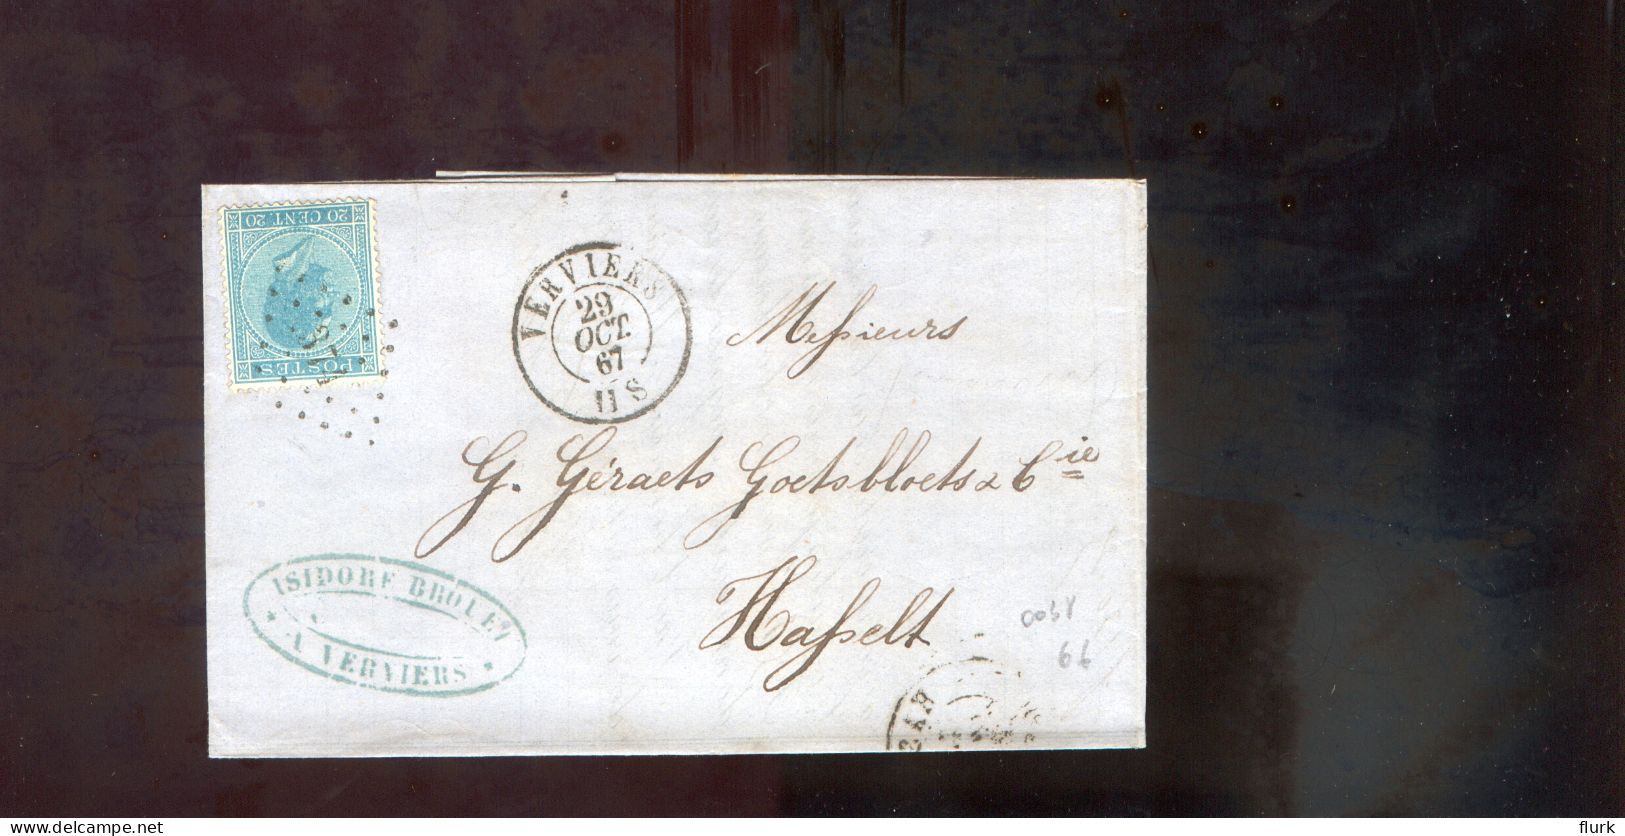 20 CENT. 20
POSTES
VERVIERS
29
OCT.
67
11 S
Messieurs
G. Géraets Goetsbloets & Cie
Hasselt
ISIDORE BROUET
A VERVIERS
66
delcampe.net
flurk